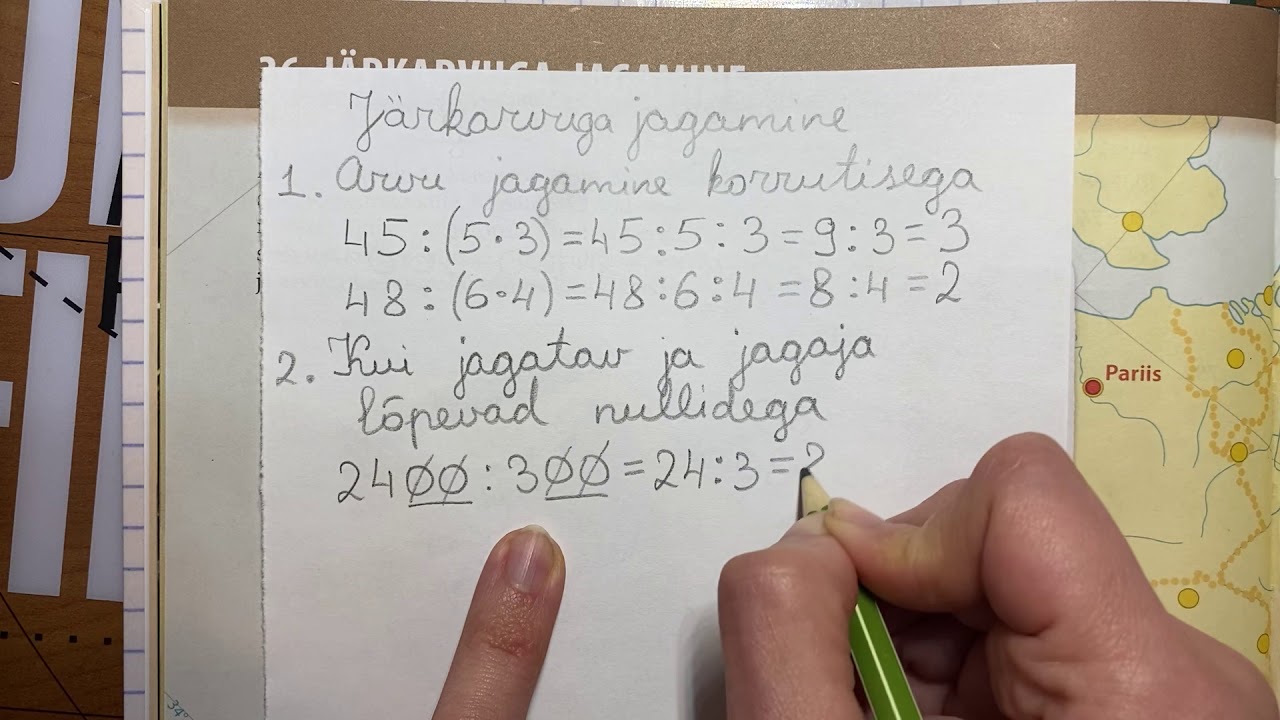 36. JÄRKARVUGA JAGAMINE
Järkarvuga jagamine
1. Arvu jagamine korrutisega
45:(5·3)=45:5:3=9:3=3
48:(6·4)=48:6:4=8:4=2
2. Kui jagatav ja jagaja
lõpevad nullidega
2400:300=24:3=
Pariis
34°